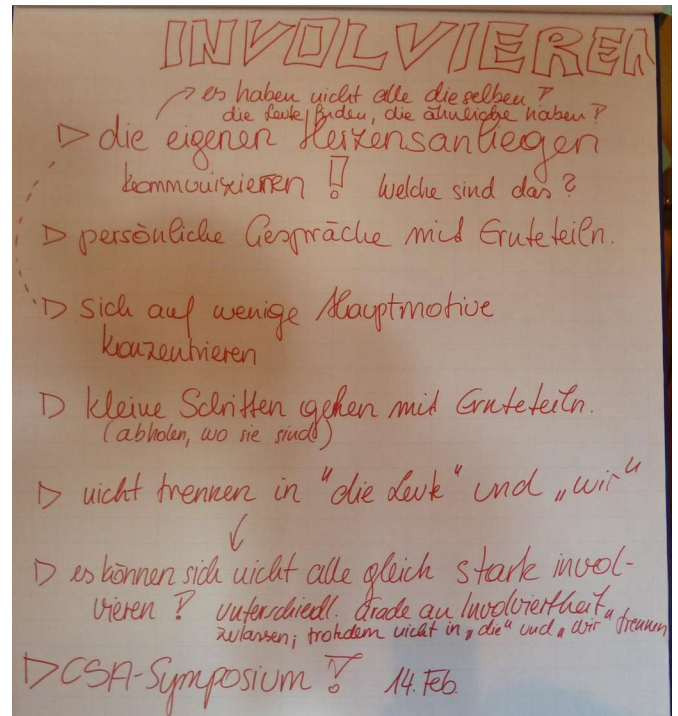 INVOLVIEREN
es haben nicht alle dieselben!
die Leute finden, die ähnliche haben!
▷ die eigenen Herzensanliegen
kommunizieren! Welche sind das?
▷ persönliche Gespräche mit Ernteteiln.
▷ sich auf wenige Hauptmotive
konzentrieren
▷ kleine Schritten gehen mit Ernteteiln.
(abholen, wo sie sind)
▷ nicht trennen in "die Leute" und „wir"
▷ es können sich nicht alle gleich stark invol-
vieren! unterschiedl. Grade an Involviertheit
zulassen; trotzdem nicht in „die" und „wir" trennen
▷ CSA-Symposium! 14. Feb.